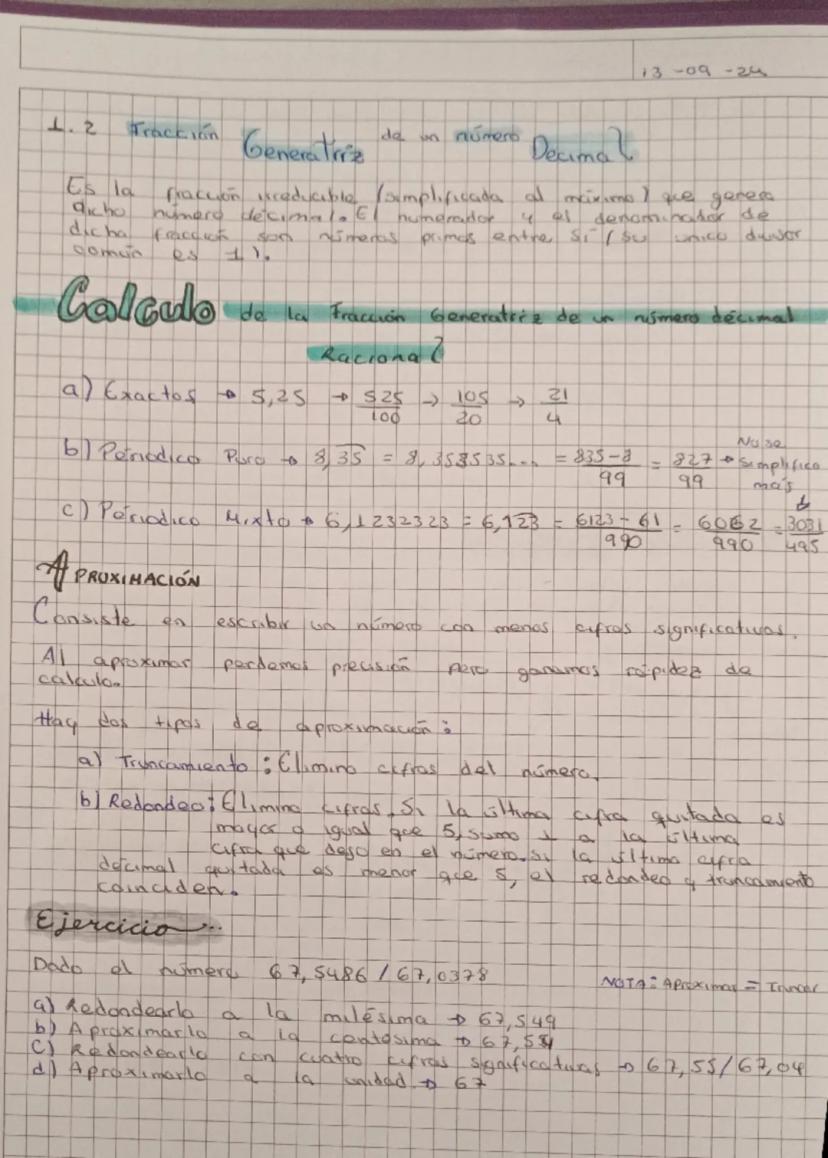 13-09-24
1.2 Fracción Generatriz de un número Decimal
Es la fracción irreducible (simplificada al máximo) que genera
dicho número decimal. El numerador y el denominador de
dicha fracción son números primos entre sí (su unico divisor
común es 1).
Calculo de la Fracción Generatriz de un número décimal
Racional
a) Exactos → 5,25 → 525/100 → 105/20 → 21/4
b) Périodico Puro → 8,3̅5̅ = 8,353535... = 835-8/99 = 827/99 → No se simplifica más
c) Périodico Mixto → 6,1232323 = 6,12̅3̅ = 6123-61/990 = 6062/990 = 3031/495
APROXIMACIÓN
Consiste en escribir un número con menos cifras significativas.
Al aproximar perdemos precisión pero ganamos rápidez de
calculo.
Hay dos tipos de aproximación:
a) Truncamiento: Elimino cifras del número.
b) Redondeo: Elimino cifras. Si la última cifra quitada es
mayor o igual que 5, sumo 1 a la última
cifra que dejo en el número. Si la última cifra
décimal quitada es menor que 5, el redondeo y truncamiento
coinciden.
Ejercicio...
Dado el número 67,5486 / 67,0378
NOTA: Aproximar = Truncar
a) Redondearlo a la milésima → 67,549
b) Aproximarlo a la centésima → 67,54
c) Redondearlo con cuatro cifras significativas → 67,55 / 67,04
d) Aproximarlo a la unidad → 67